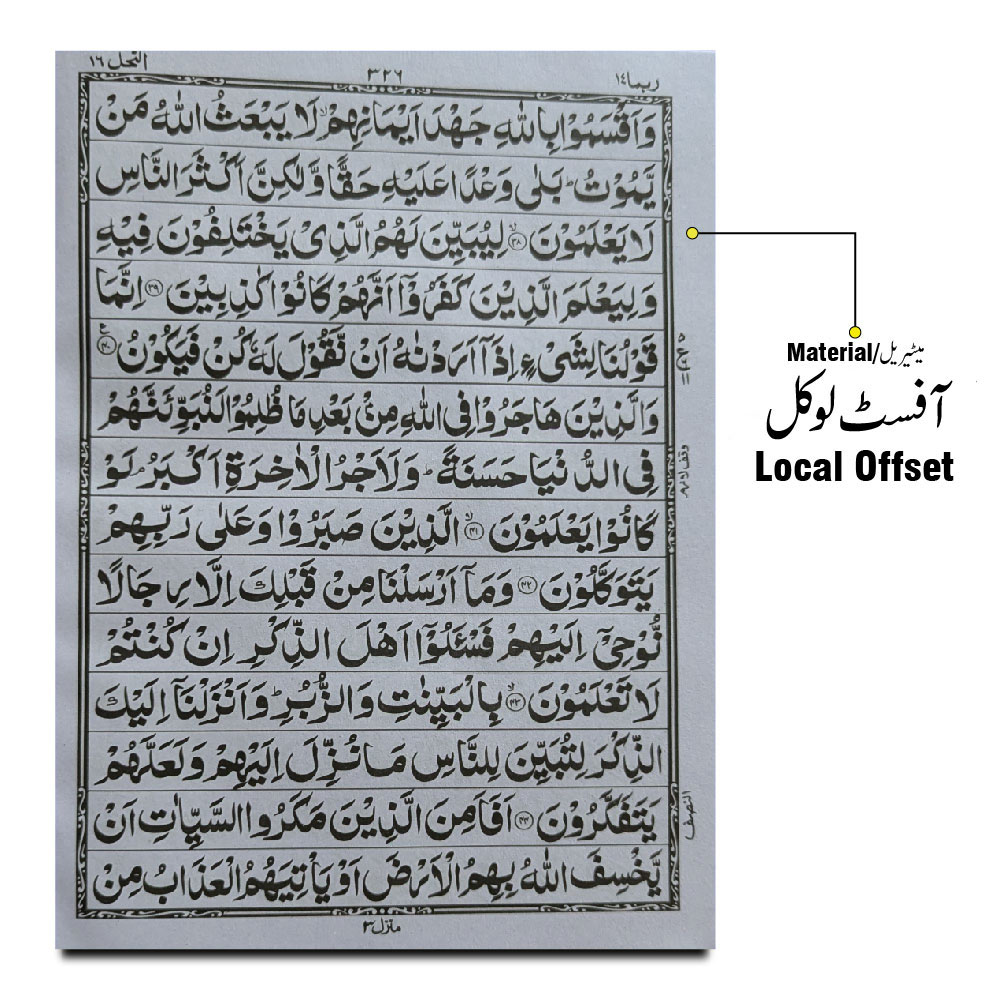 النحل ١٦
٣٢٦
ربما ١٤
وَاَقْسَمُوْا بِاللّٰهِ جَهْدَ اَيْمَانِهِمْ ۙ لَا يَبْعَثُ اللّٰهُ مَنْ
يَّمُوْتُ ؕ بَلٰى وَعْدًا عَلَيْهِ حَقًّا وَّلٰكِنَّ اَكْثَرَ النَّاسِ
لَا يَعْلَمُوْنَ ۙ﴿۳۸﴾ لِيُبَيِّنَ لَهُمُ الَّذِىْ يَخْتَلِفُوْنَ فِيْهِ
وَلِيَعْلَمَ الَّذِيْنَ كَفَرُوْۤا اَنَّهُمْ كَانُوْا كٰذِبِيْنَ ﴿۳۹﴾ اِنَّمَا
قَوْلُنَا لِشَىْءٍ اِذَاۤ اَرَدْنٰهُ اَنْ نَّقُوْلَ لَهٗ كُنْ فَيَكُوْنُ ﴿۴۰﴾
وَالَّذِيْنَ هَاجَرُوْا فِى اللّٰهِ مِنْۢ بَعْدِ مَا ظُلِمُوْا لَنُبَوِّئَنَّهُمْ
فِى الدُّنْيَا حَسَنَةً ؕ وَلَاَجْرُ الْاٰخِرَةِ اَكْبَرُ ۘ لَوْ
كَانُوْا يَعْلَمُوْنَ ۙ﴿۴۱﴾ الَّذِيْنَ صَبَرُوْا وَعَلٰى رَبِّهِمْ
يَتَوَكَّلُوْنَ ﴿۴۲﴾ وَمَاۤ اَرْسَلْنَا مِنْ قَبْلِكَ اِلَّا رِجَالًا
نُّوْحِىْۤ اِلَيْهِمْ فَسْـَٔلُوْۤا اَهْلَ الذِّكْرِ اِنْ كُنْتُمْ
لَا تَعْلَمُوْنَ ۙ﴿۴۳﴾ بِالْبَيِّنٰتِ وَالزُّبُرِ ؕ وَاَنْزَلْنَاۤ اِلَيْكَ
الذِّكْرَ لِتُبَيِّنَ لِلنَّاسِ مَا نُزِّلَ اِلَيْهِمْ وَلَعَلَّهُمْ
يَتَفَكَّرُوْنَ ﴿۴۴﴾ اَفَاَمِنَ الَّذِيْنَ مَكَرُوا السَّيِّاٰتِ اَنْ
يَّخْسِفَ اللّٰهُ بِهِمُ الْاَرْضَ اَوْ يَاْتِيَهُمُ الْعَذَابُ مِنْ
النصف
منزل ٣
Material/میٹیریل
آفسٹ لوکل
Local Offset